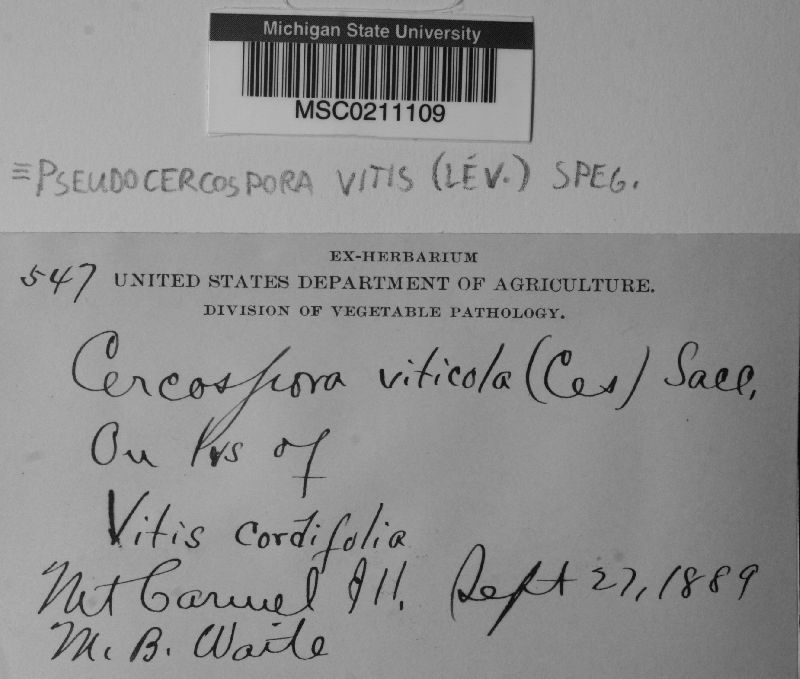 Michigan State University
MSC0211109
≡ PSEUDOCERCOSPORA VITIS (LÉV.) SPEG.
EX-HERBARIUM
547 UNITED STATES DEPARTMENT OF AGRICULTURE.
DIVISION OF VEGETABLE PATHOLOGY.
Cercospora viticola (Ces) Sacc.
On lvs of
Vitis cordifolia
Mt Carmel Ill. Sept 27, 1889
M. B. Waite